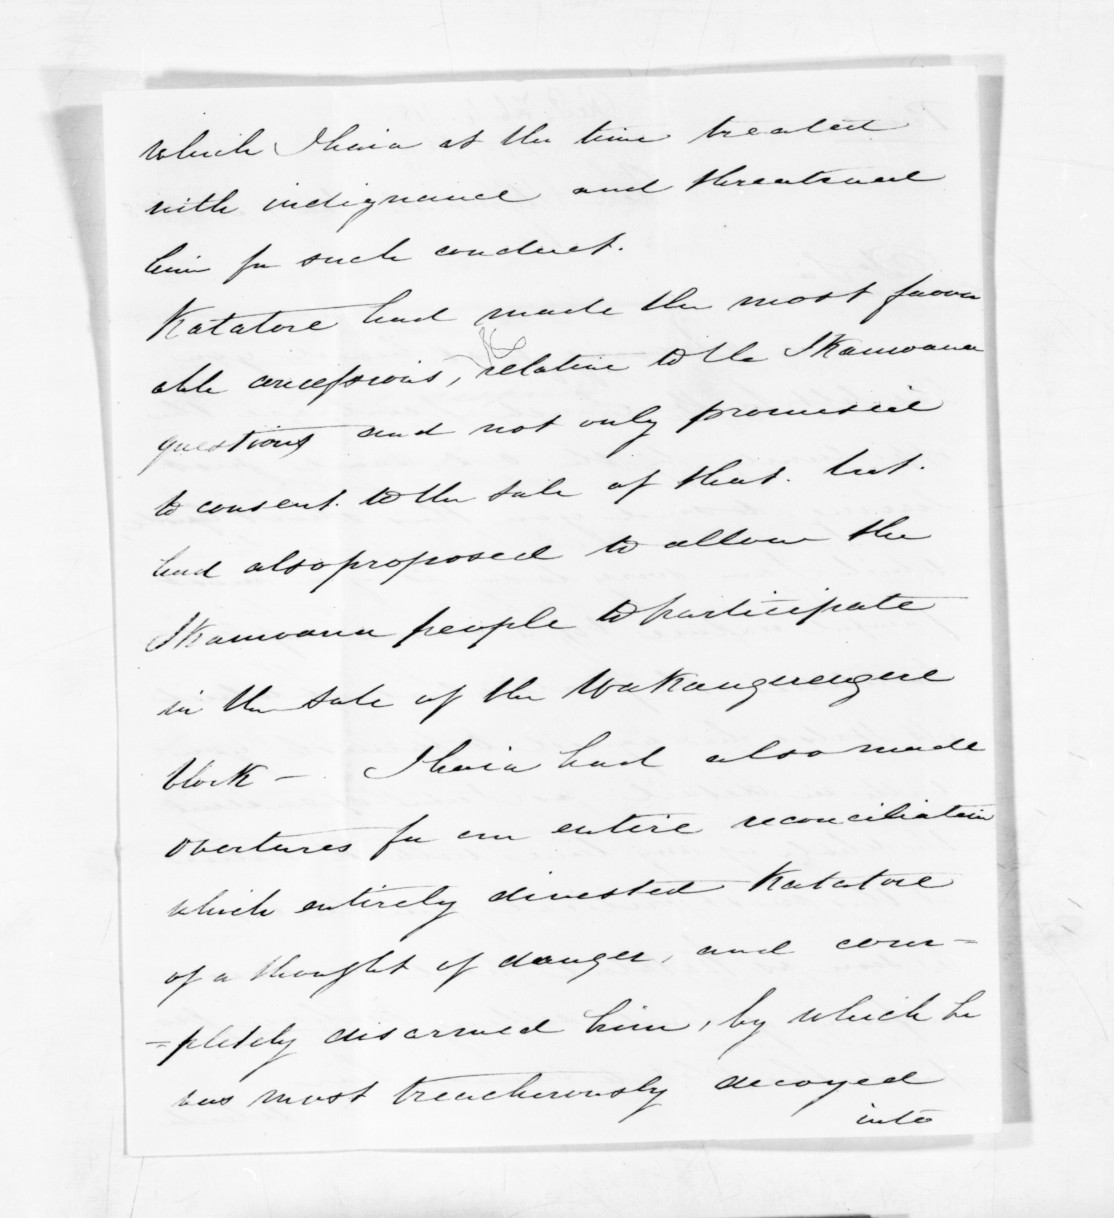 which Ihaia at the time treated
with indignance and threatened
him for such conduct.
Katatore had made the most favor
able concessions, relative to the Ikamoana
questions and not only promised
to consent. to the sale of that. but.
had also proposed to allow the
Ikamoana people to participate
in the sale of the Wakangerengere
block – Ihaia had also made
overtures for an entire reconciliation
which entirely divested Katatore
of a thought of danger, and com-
-pletely disarmed him, by which he
was most treacherously decoyed
into